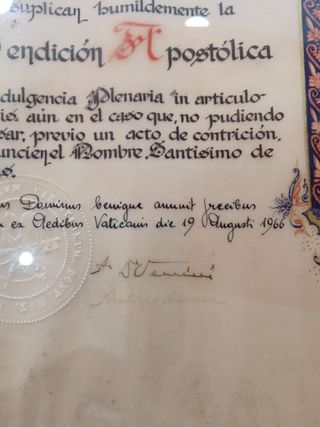 suplican humildemente la
endición Apostólica
ndulgencia Plenaria in articulo
is, aún en el caso que, no pudiendo
sar, previo un acto de contrición,
uncien el Nombre Santisimo de
s.
us Dominus benigne annuit precibus
ex Aedibus Vaticanis die 19 Augusti 1966